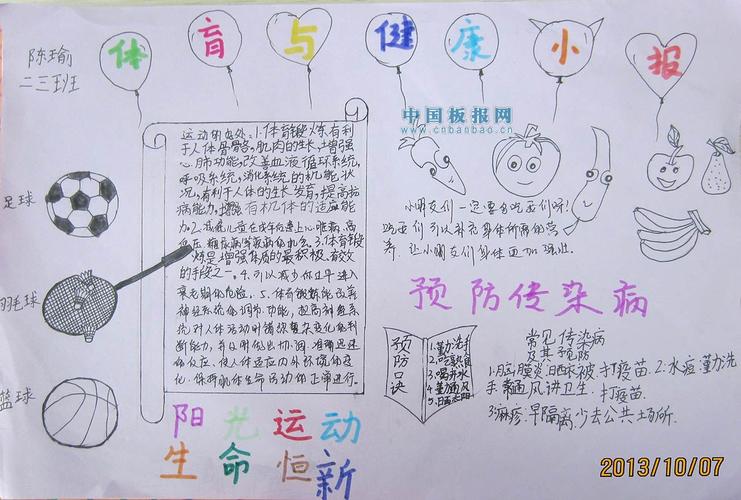 体育与健康小报
陈瑜
二三班
中国板报网
www.cnbanbao.cn
运动的好处:1.体育锻炼有利
于人体骨骼,肌肉的生长,增强
心肺功能,改善血液循环系统,
呼吸系统,消化系统的机能状
况,有利于人体的生长发育,提高抗
病能力,增强有机体的适应能
力2.减低儿童在成年后患上心脏病,高
血压,糖尿病等疾病的机会.3.体育锻
炼是增强体质的最积极、有效
的手段之一.4.可以减少你过早进入
衰老期的危险.5.体育锻炼能改善
神经系统的调节功能,提高神经系
统对人体活动时错综复杂变化的判
断能力,并及时做出协调、准确、迅速
的反应,使人体适应内外环境的变
化、保持肌体生命活动的正常进行。
足球
羽毛球
篮球
小朋友们一定要多吃它们呀!
吃它们可以补充身体所需的营
养,让小朋友们身体更加强壮。
预防传染病
预防口诀
1.勤洗手
2.吃熟食
3.喝开水
4.勤通风
5.晒太阳
常见传染病
及其预防
1.脑膜炎:晒被.打疫苗.2.水痘:勤洗
手.通风.讲卫生.打疫苗.
3.麻疹:早隔离.少去公共场所.
阳光运动
生命恒新
2013/10/07